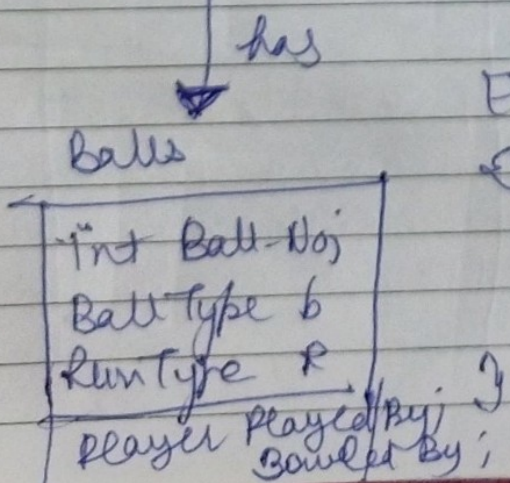 has
Balls
int Ball-No;
BallType b
RunType R
Player Played By;
Bowled By;
}
E